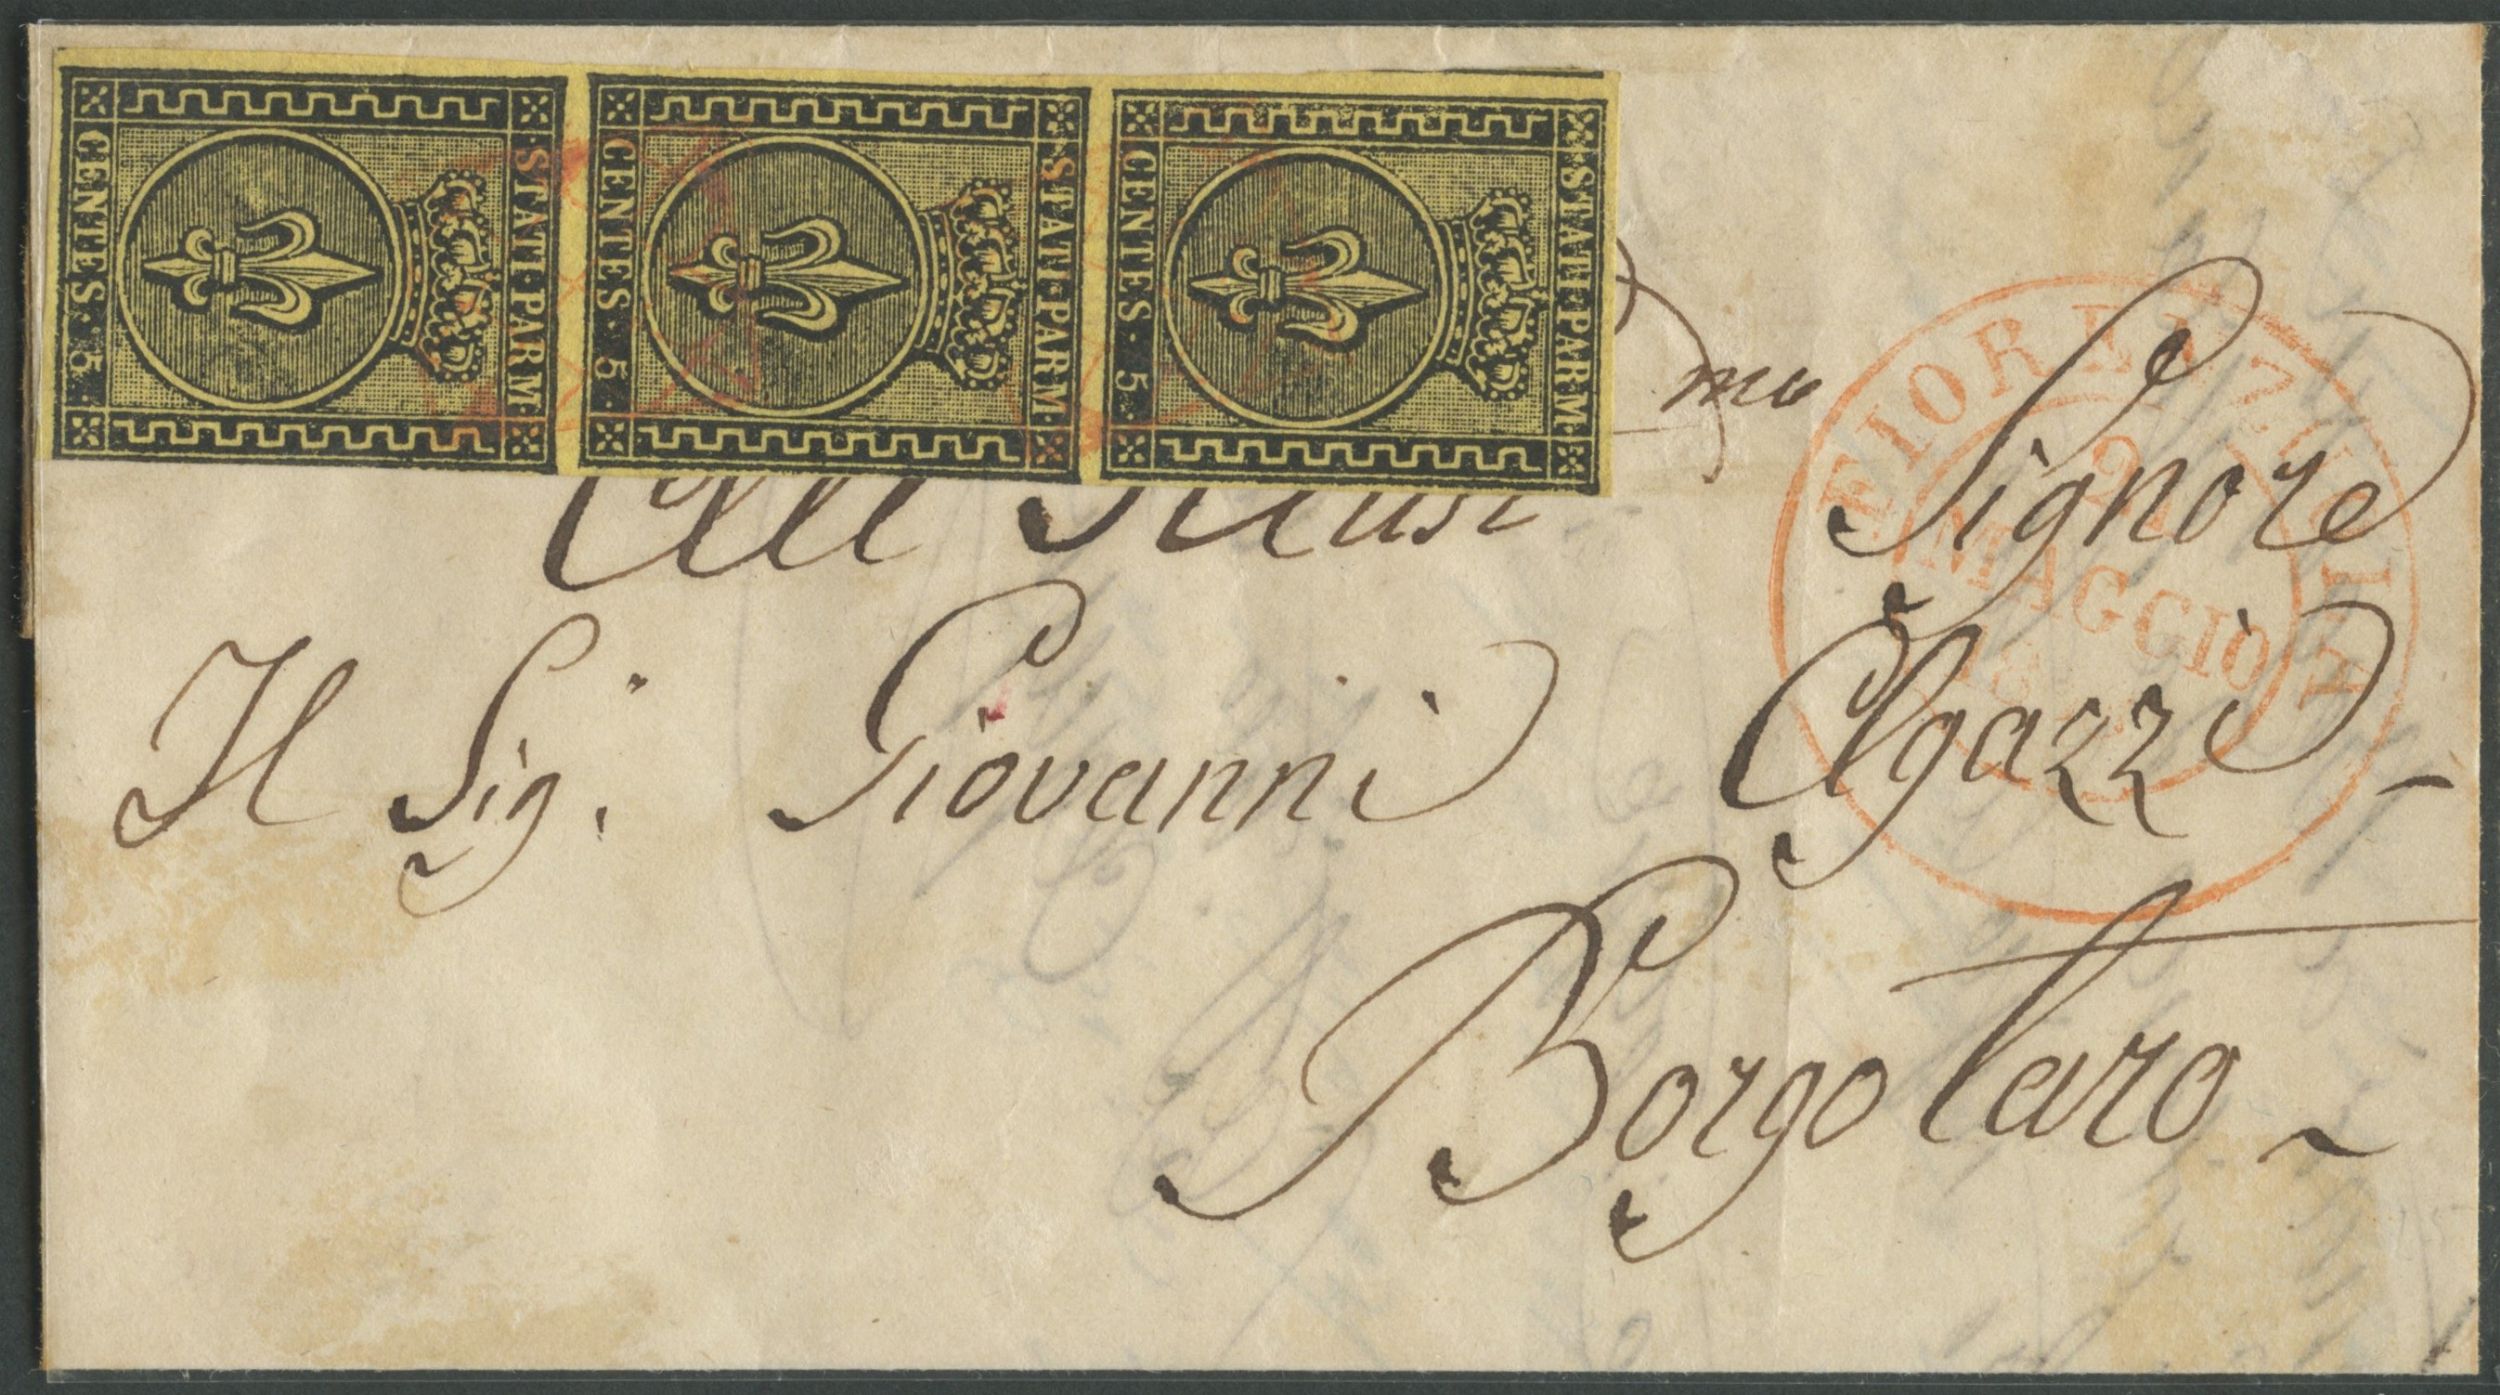 ·STATI·PARM·
CENTES·5
·STATI·PARM·
CENTES·5
·STATI·PARM·
CENTES·5
mo Signore
Il Sig.r Giovanni Agazzi –
Borgotaro ~
FIORENZUOLA
2
MAGGIO